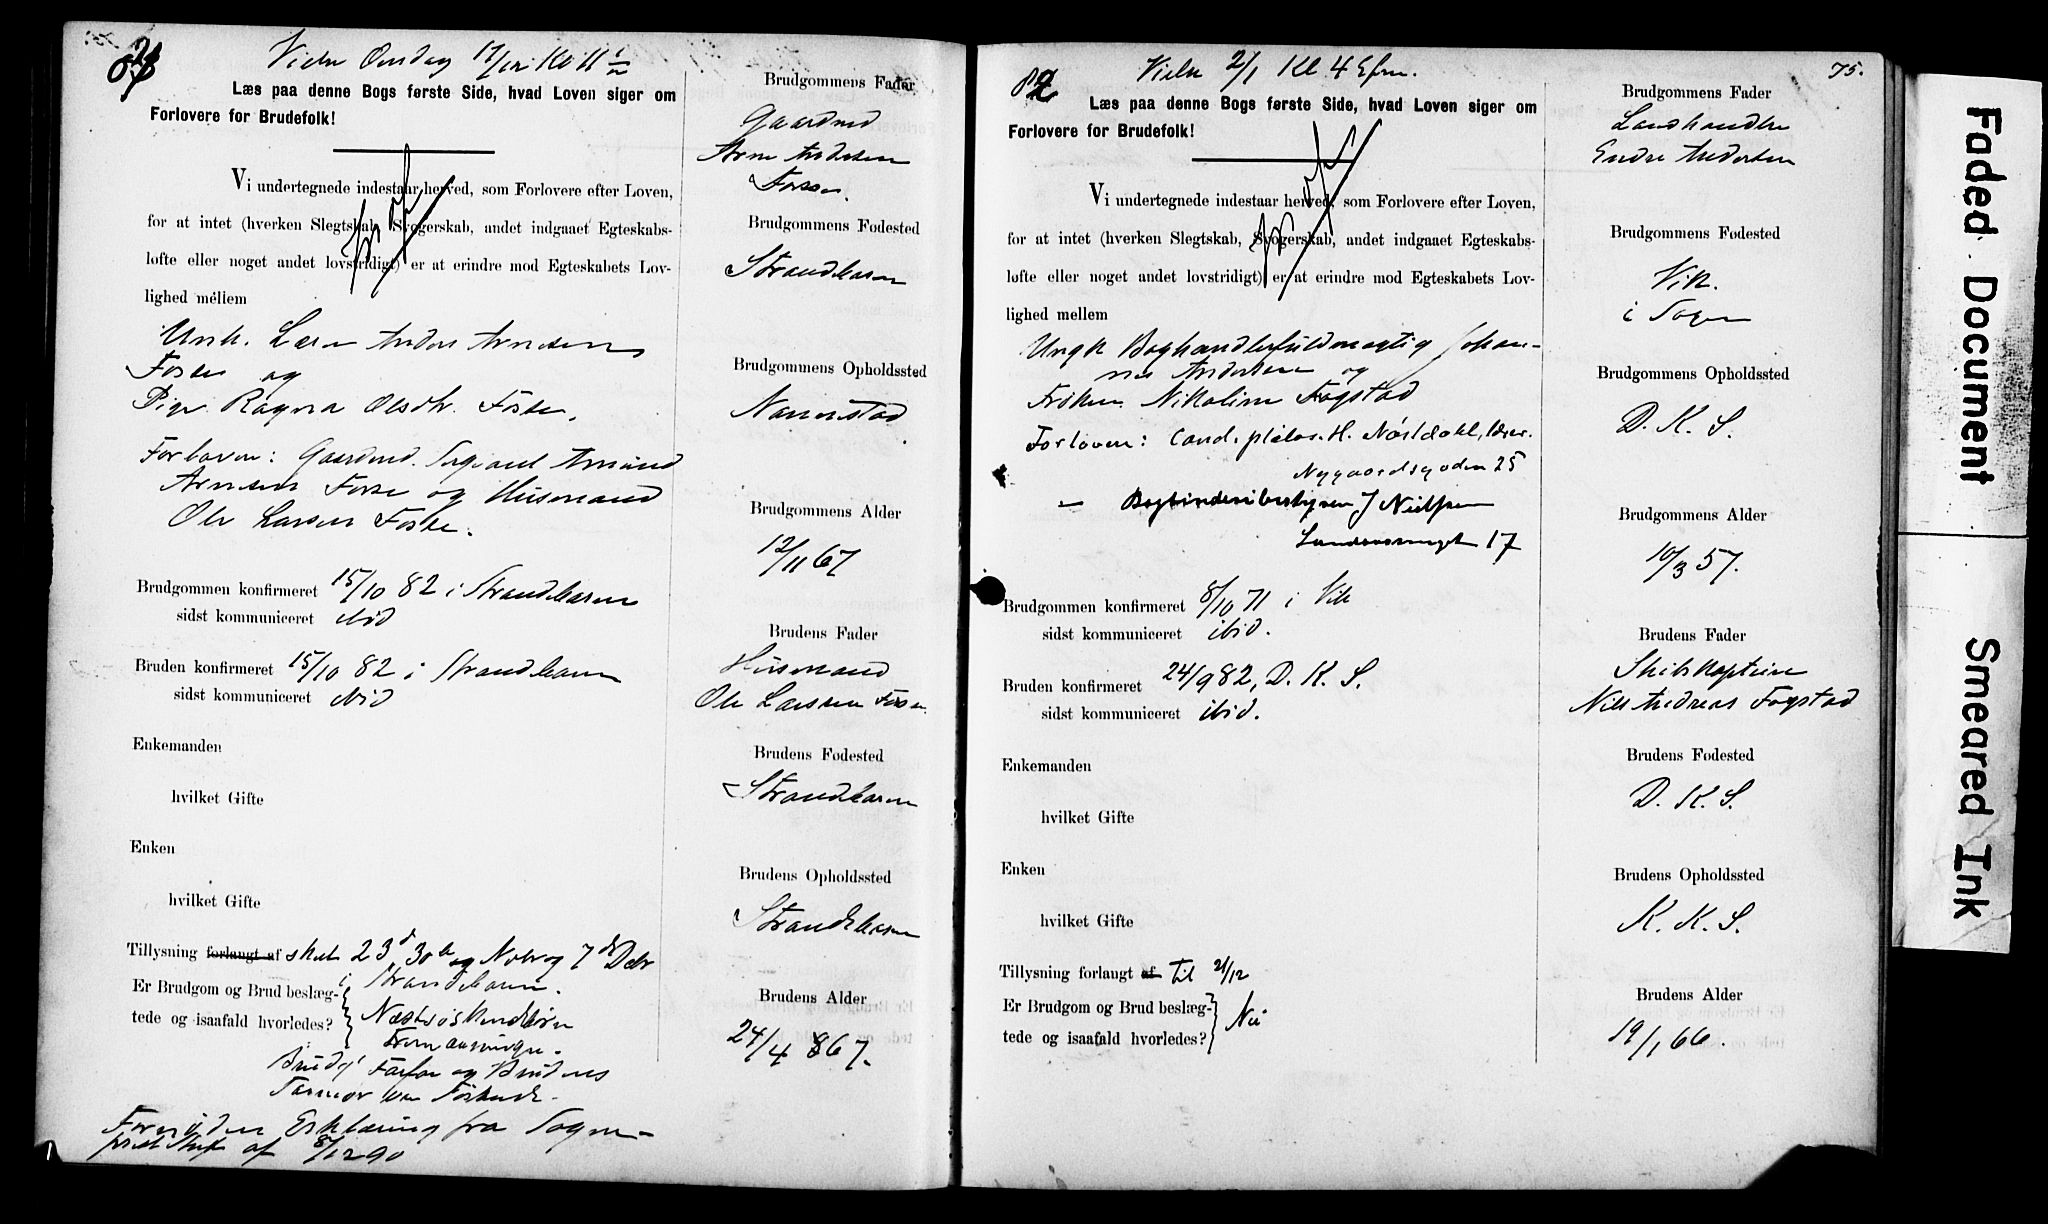 Vielse Onsdag 17/12 Kl 11 1/2
Læs paa denne Bogs første Side, hvad Loven siger om
Forlovere for Brudefolk!
Vi undertegnede indestaar herved, som Forlovere efter Loven,
for at intet (hverken Slegtskab, Svogerskab, andet indgaaet Egteskabs-
løfte eller noget andet lovstridigt) er at erindre mod Egteskabets Lov-
lighed mellem
Ungk. Lærer Anders Arnesen
Fosse og
Pige Ragna Olsdtr. Fosse.
Forlovere: Gaardmd. Sergeant Amund
Arnesen Fosse og Husmand
Ole Larsen Fosse.
Brudgommen konfirmeret 15/10 82 i Strandebarm
sidst kommuniceret ibid
Bruden konfirmeret 15/10 82 i Strandebarm
sidst kommuniceret ibid
Enkemanden
hvilket Gifte
Enken
hvilket Gifte
Tillysning forlangt af skeet 23d 30te og Novbr og 7de Decbr
i Strandebarm.
Er Brudgom og Brud beslæg-
tede og isaafald hvorledes?
Næstsøskendebørn
Brudg. Farfar og Brudens
Farmor var Søskende.
Fornøden Erklæring fra Sogne-
præst af 8/12 90
Brudgommens Fader
Gaardmd
Arne Andersen
Fosse.
Brudgommens Fødested
Strandebarm
Brudgommens Opholdssted
Nannestad
Brudgommens Alder
12/11 67
Brudens Fader
Husmand
Ole Larsen Fosse
Brudens Fødested
Strandebarm
Brudens Opholdssted
Strandebarm
Brudens Alder
24/4 867.
82
Vielse 2/1 Kl 4 Efm.
75.
Læs paa denne Bogs første Side, hvad Loven siger om
Forlovere for Brudefolk!
Vi undertegnede indestaar herved, som Forlovere efter Loven,
for at intet (hverken Slegtskab, Svogerskab, andet indgaaet Egteskabs-
løfte eller noget andet lovstridigt) er at erindre mod Egteskabets Lov-
lighed mellem
Ungk Boghandlerfuldmægtig Johan-
nes Andersen og
Frøken Nikoline Fogstad
Forlovere: Cand. philos. H. Nordahl, lærer.
Nygaardsgaden 25
– Bogbinderibestyrer J Nielsen
17
Brudgommen konfirmeret 8/10 71 i Vik
sidst kommuniceret ibid.
Bruden konfirmeret 24/9 82, D. K. S.
sidst kommuniceret ibid.
Enkemanden
hvilket Gifte
Enken
hvilket Gifte
Tillysning forlangt af til 21/12
Er Brudgom og Brud beslæg-
tede og isaafald hvorledes?
Nei
Brudgommens Fader
Landhandler
Endre Andersen
Brudgommens Fødested
Vik
i Sogn
Brudgommens Opholdssted
D. K. S.
Brudgommens Alder
10/3 57.
Brudens Fader
Skibskaptein
Nils Andreas Fogstad
Brudens Fødested
D. K. S.
Brudens Opholdssted
K. K. S.
Brudens Alder
19/1 66.
Faded Document
Smeared Ink